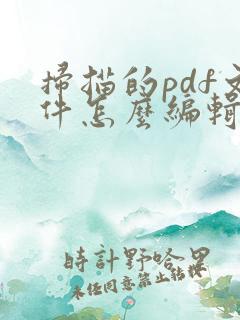 掃描的pdf文
件怎麼編輯
時計野哈男
未任同意禁止転機